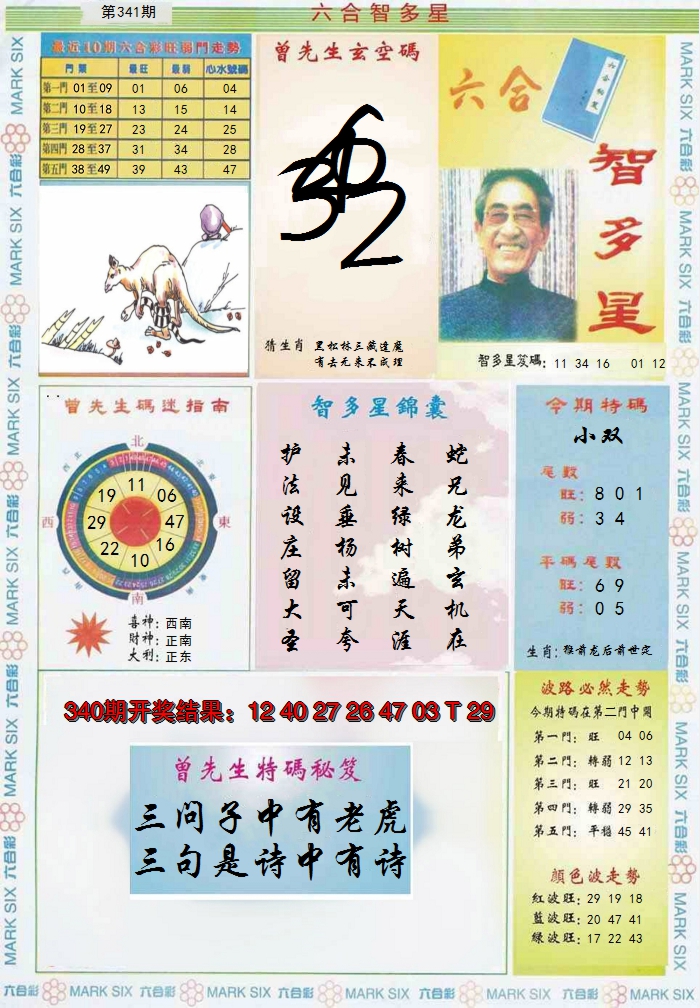 第341期
六合智多星
最近10期六合彩旺弱門走勢
門票 最旺 最弱 心水號碼
第一門 01至09 01 06 04
第二門 10至18 13 15 14
第三門 19至27 23 24 25
第四門 28至37 31 34 28
第五門 38至49 39 43 47
曾先生玄空碼
猜生肖 黑松林三藏逢魔
有去无来不成理
六合
智多星
智多星笈碼: 11 34 16 01 12
曾先生碼迷指南
北
西北
東北
11
19 06
西 29 47 東
22 16
10
南
喜神: 西南
財神: 正南
大利: 正东
智多星錦囊
蛇兄龙弟玄机在
春来绿树遍天涯
未见垂杨未可夸
护法设庄留大圣
今期特碼
小双
尾數
旺: 8 0 1
弱: 3 4
平碼尾數
旺: 6 9
弱: 0 5
生肖: 猴前龙后前世定
340期开奖结果: 12 40 27 26 47 03 T 29
曾先生特碼秘笈
三问子中有老虎
三句是诗中有诗
波路必然走势
今期特碼在第二門中開
第一門: 旺 04 06
第二門: 轉弱 12 13
第三門: 旺 21 20
第四門: 轉弱 29 35
第五門: 平穩 45 41
顏色波走勢
紅波旺: 29 19 18
藍波旺: 20 47 41
綠波旺: 17 22 43
MARK SIX 六合彩